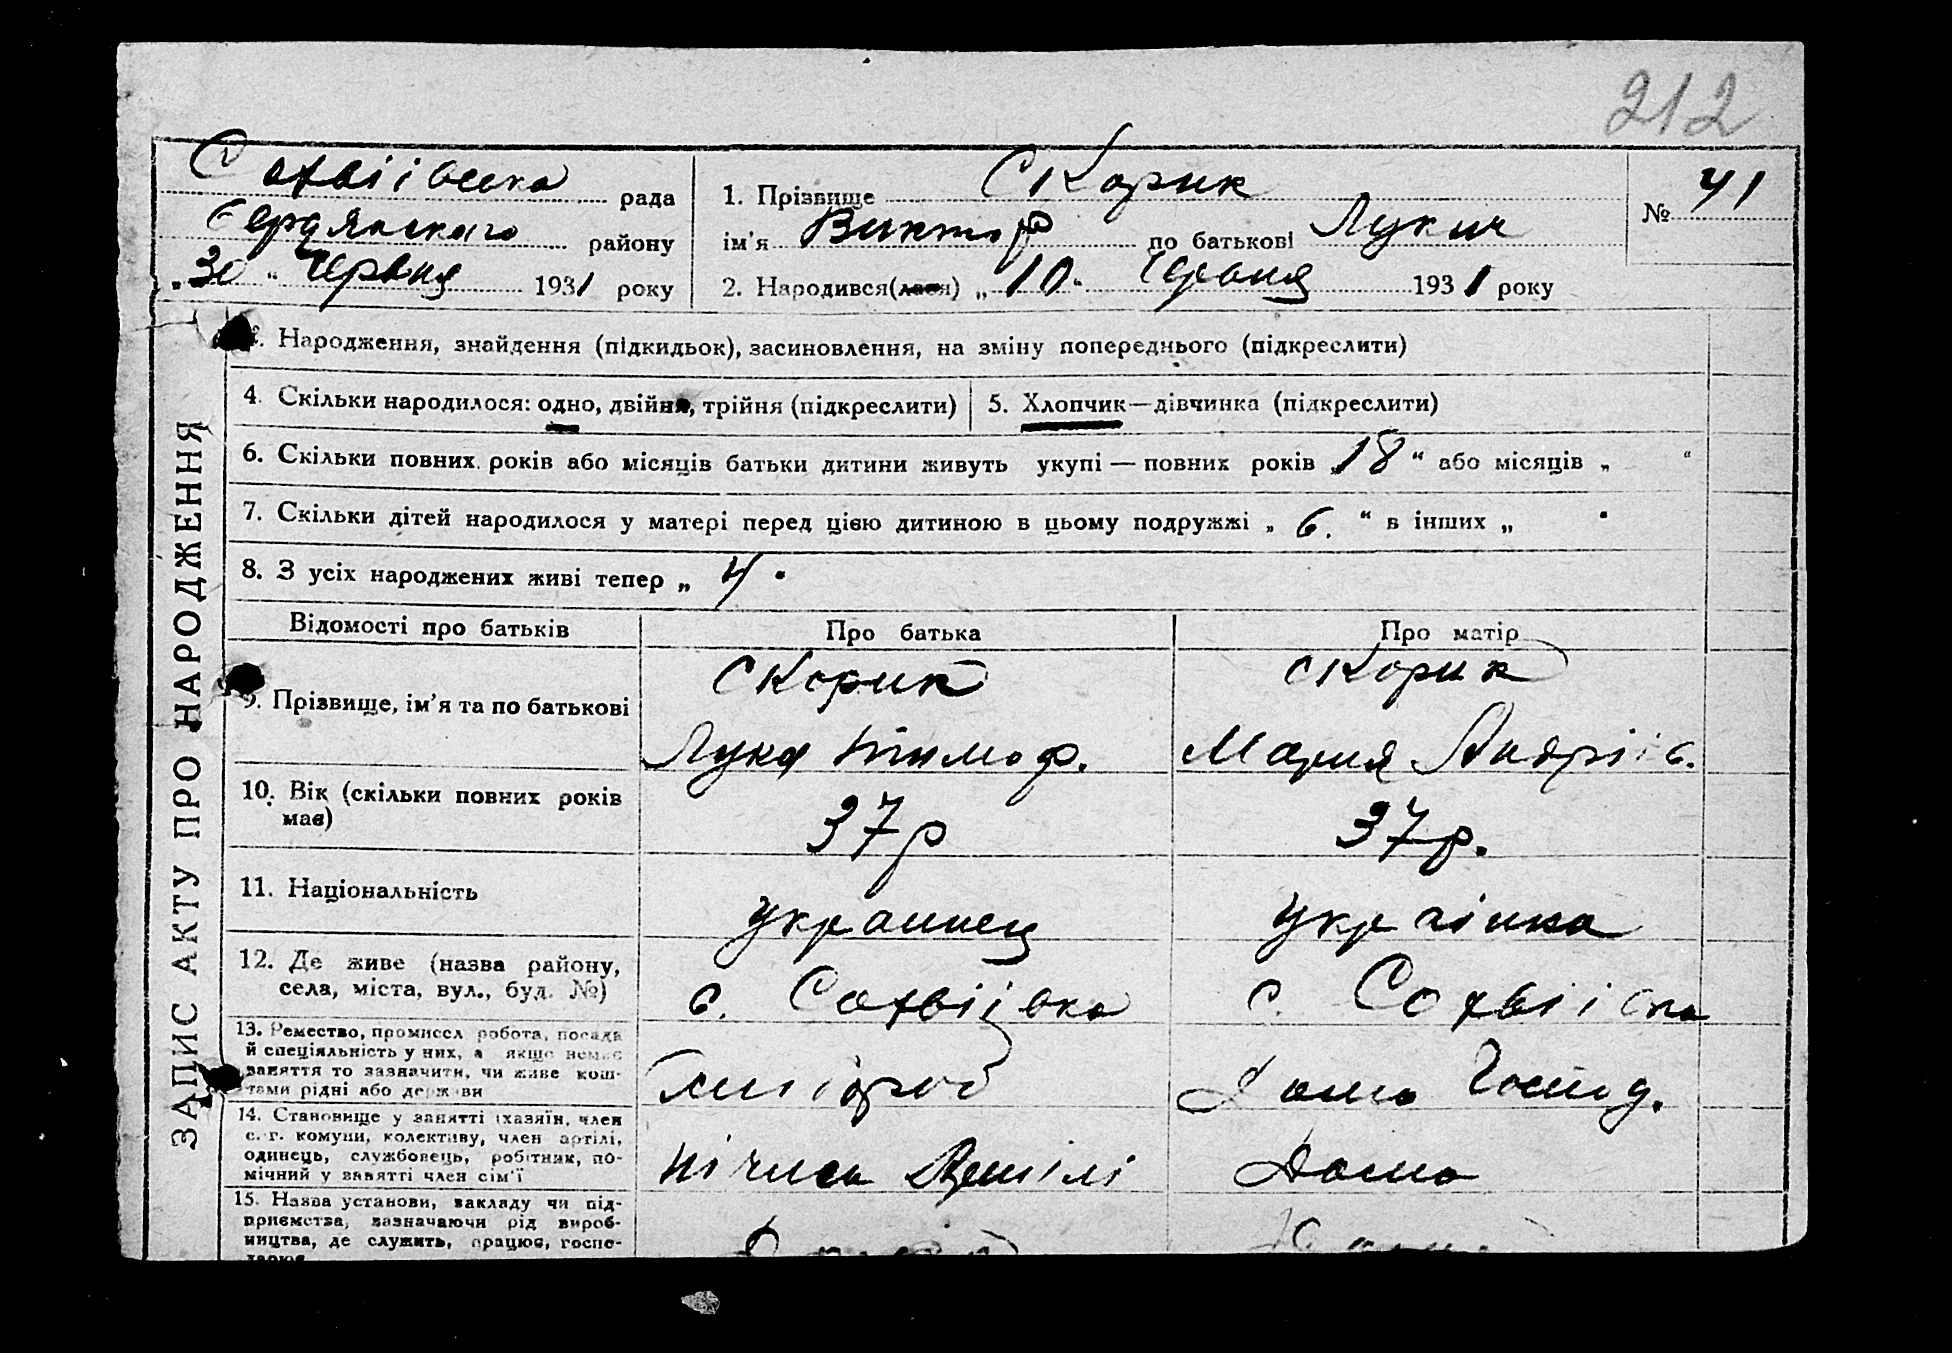 212
Софіівска рада
Бердянского району
„30“ Червня 1931 року
1. Прізвище Скорик
ім'я Виктор по батькові Лукич
2. Народився(лася) „10“ Червня 1931 року
№ 41
ЗАПИС АКТУ ПРО НАРОДЖЕННЯ
3. Народження, знайдення (підкидьок), засиновлення, на зміну попереднього (підкреслити)
4. Скільки народилося: одно, двійня, трійня (підкреслити)
5. Хлопчик—дівчинка (підкреслити)
6. Скільки повних років або місяців батьки дитини живуть укупі — повних років „18“ або місяців „ “
7. Скільки дітей народилося у матері перед цією дитиною в цьому подружжі „6.“ в інших „ “
8. З усіх народжених живі тепер „4“
Відомості про батьків Про батька Про матір
9. Прізвище, ім'я та по батькові
Скорик
Лука Тимоф.
Скорик
Мария Андріів.
10. Вік (скільки повних років має)
37 р
37 р.
11. Національність
украинец
украінка
12. Де живе (назва району,
села, міста, вул., буд. №)
с. Софіівка
с. Софіівка
13. Ремество, промисел робота, посада
й спеціяльність у них, а якщо немає
заняття то зазначити, чи живе кош-
тами рідні або держави
Хлібороб
Дома Господ.
14. Становище у занятті (хазяїн, член
с.-г. комуни, колективу, член артілі,
одинець, службовець, робітник, по-
мічний у занятті член сім'ї
Дома
15. Назва установи, закладу чи під-
приємства, зазначаючи рід вироб-
ництва, де служить, працює, госпо-